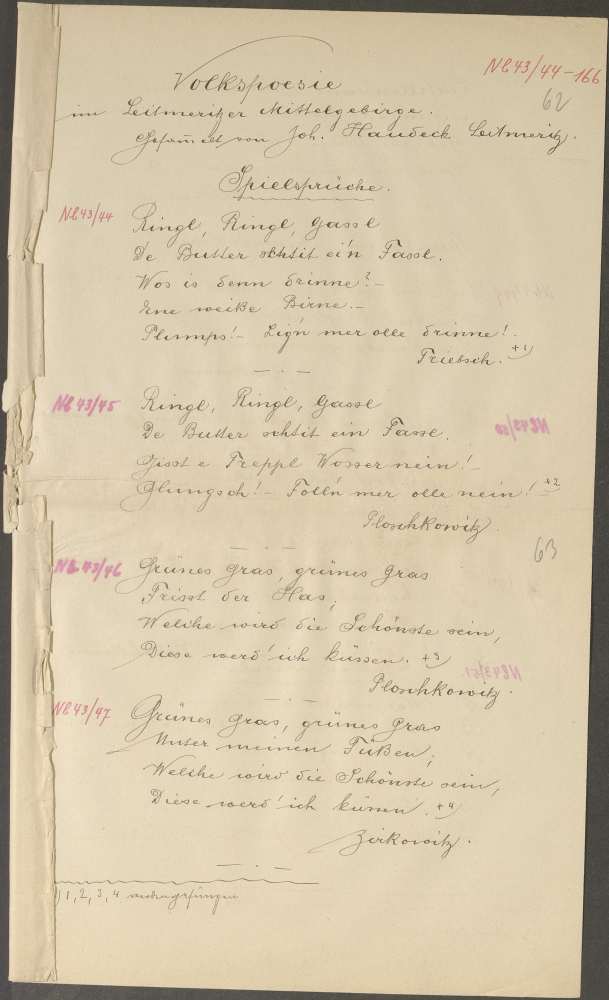 NB 43/44-166
62
Volkspoesie
im Leitmeritzer Mittelgebirge.
Gesammelt von Joh. Haudeck Leitmeritz.
Spielsprüche.
NB 43/44
Ringl, Ringl, Gassl
De Butter schtit ei'n Fassl.
Wos is denn drinne? -
Ene weiße Birne. -
Plumps! - Lign mer olle drinne!
Triebsch. +1)
NB 43/45
Ringl, Ringl, Gassl
De Butter schtit ein Fassl.
Gisst e Treppl Wosser nein! -
Glungsch! - Folln mer olle nein! +2
Ploschkowitz.
63
NB 43/46
Grünes Gras, grünes Gras
Frisst der Has;
Welche wird die Schönste sein,
Diese werd' ich küssen. +3)
Ploschkowitz.
NB 43/47
Grünes Gras, grünes Gras
Unter meinen Füßen;
Welche wird die Schönste sein,
Diese werd' ich küssen. +4)
Zirkowitz.
1, 2, 3, 4